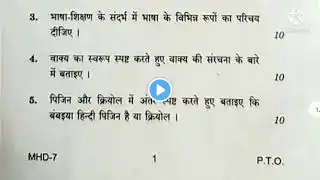 3. भाषा-शिक्षण के संदर्भ में भाषा के विभिन्न रूपों का परिचय
दीजिए ।
10
4. वाक्य का स्वरूप स्पष्ट करते हुए वाक्य की संरचना के बारे
में बताइए ।
10
5. पिजिन और क्रियोल में अंतर स्पष्ट करते हुए बताइए कि
बंबइया हिन्दी पिजिन है या क्रियोल ।
10
MHD-7 1 P.T.O.